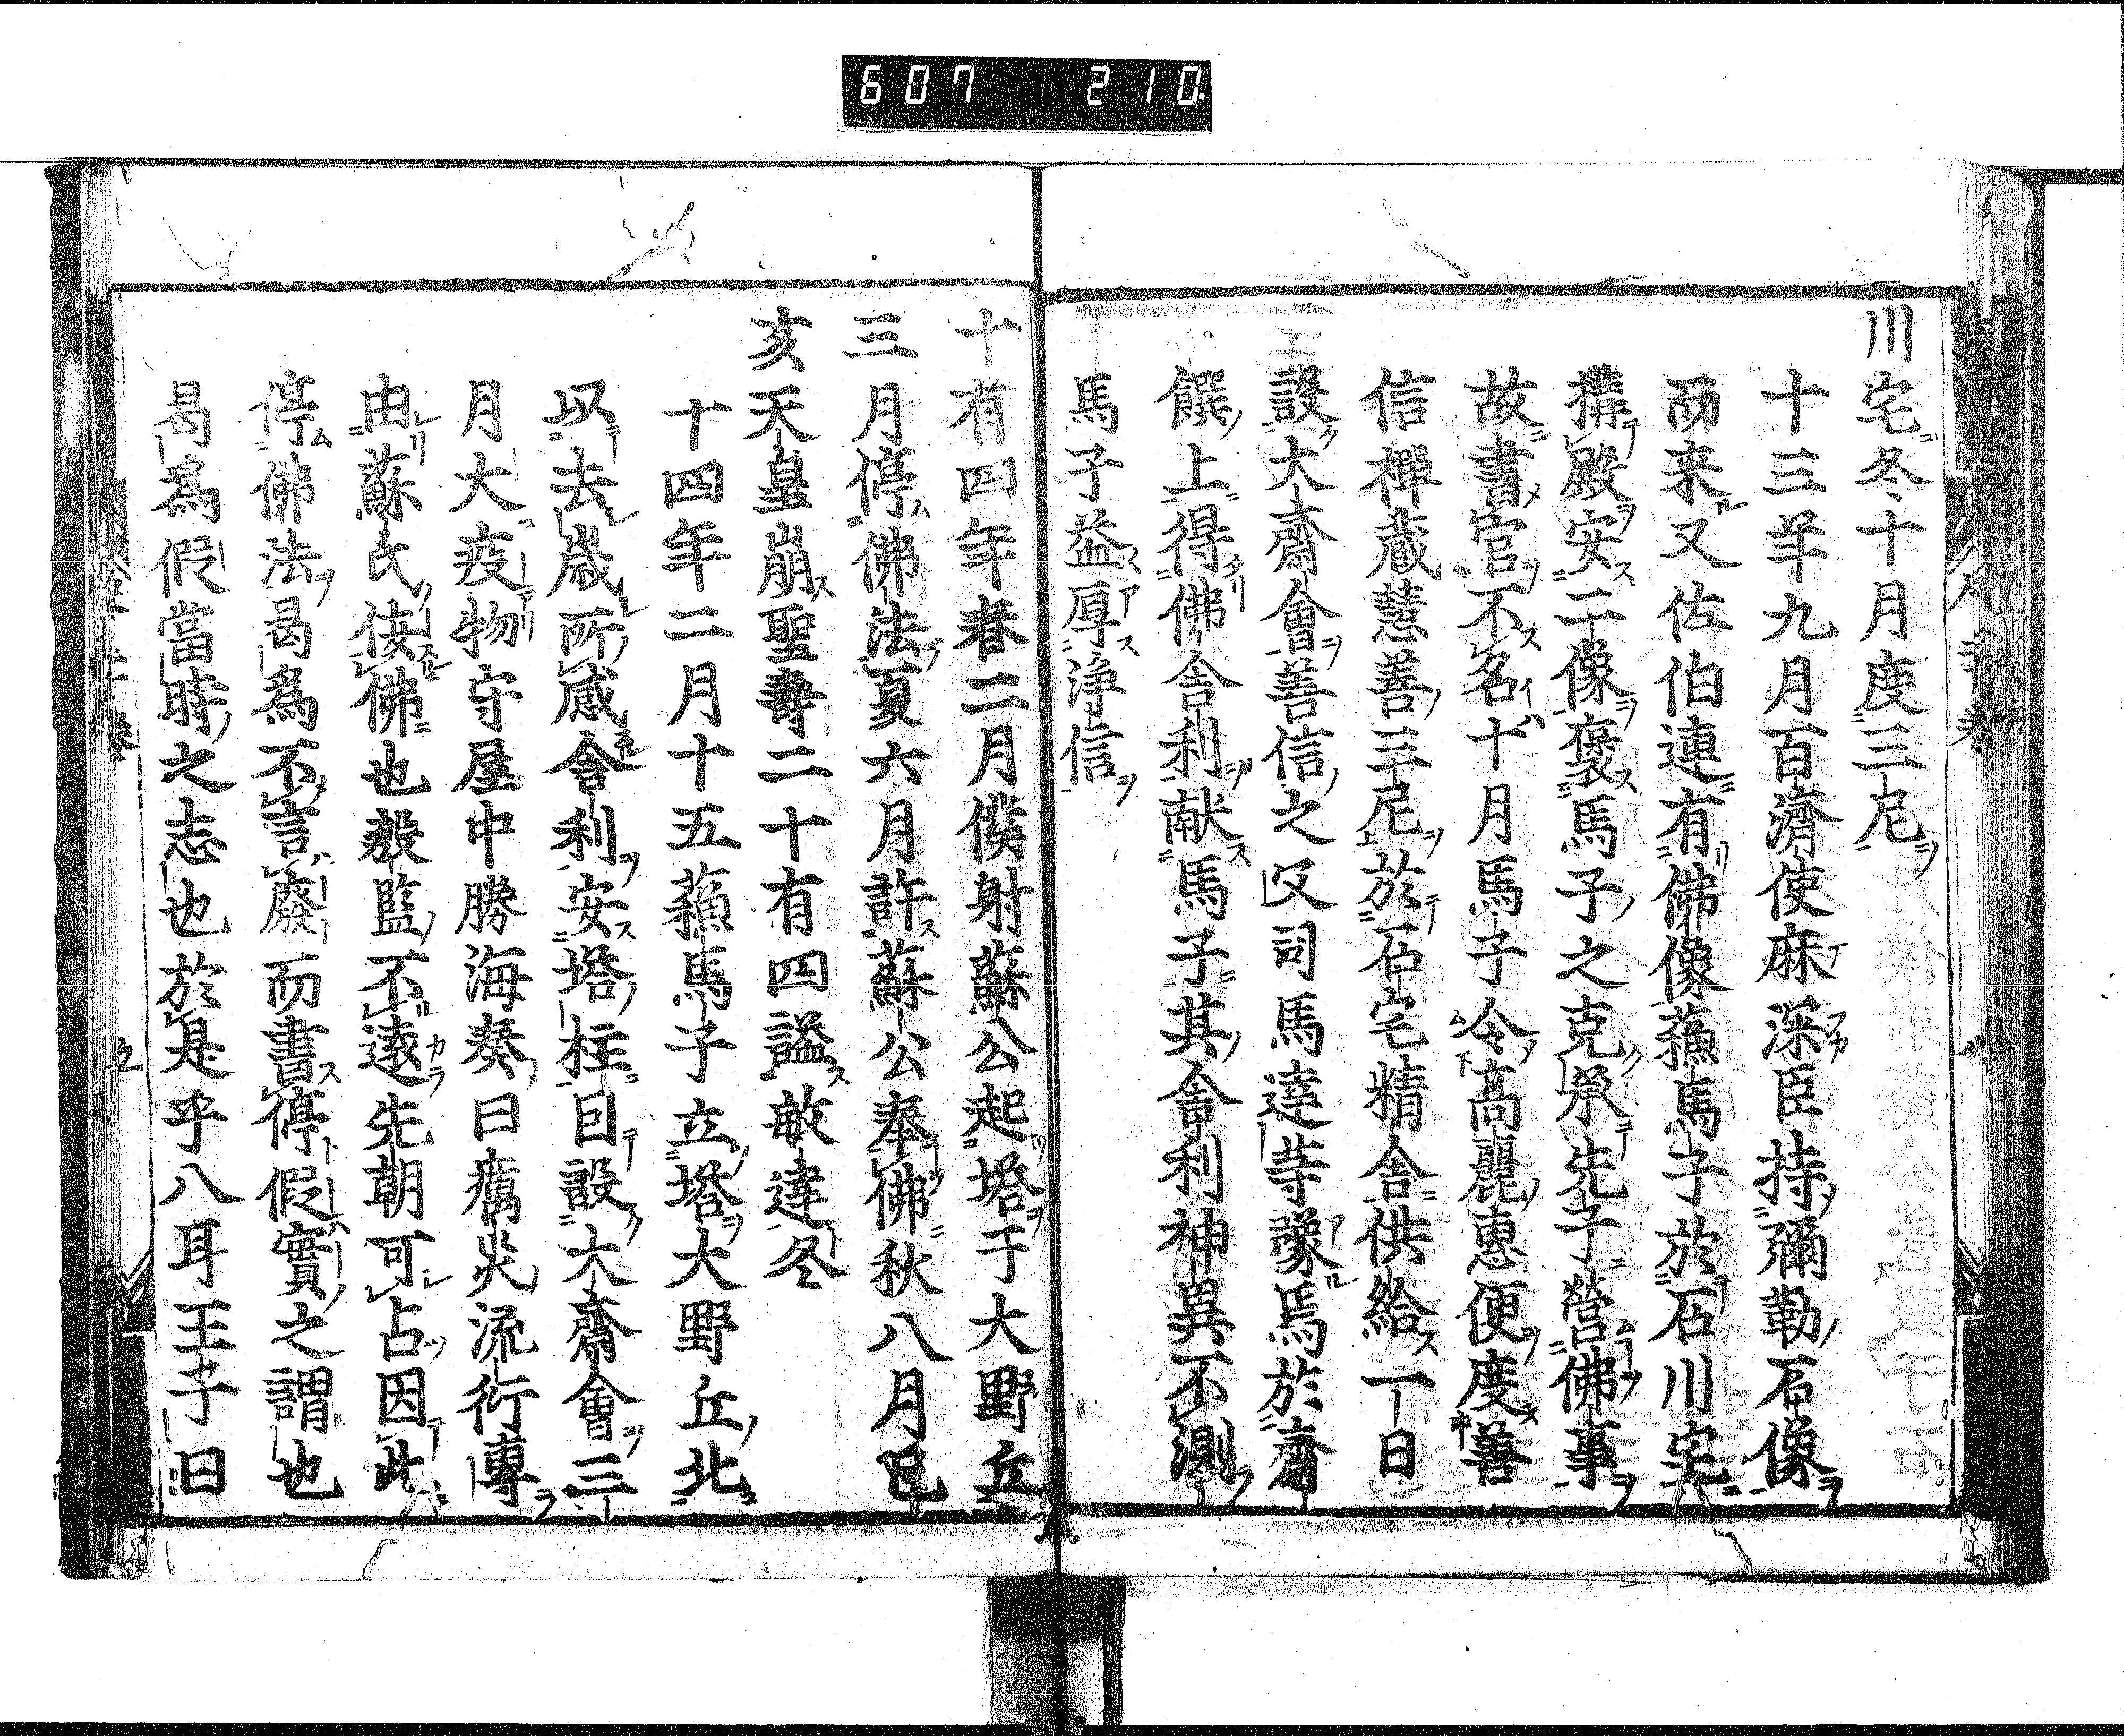 607 210
川宅冬十月度三尼
十三年九月百濟使麻深臣持彌勒石像
而来又佐伯連有佛像蘓馬子於石川宅
搆殿安二像褒馬子之克承先子營佛事
故書官不名十月馬子令高麗惠便度善
信禪蔵慧善三尼於石宅精舎供給一日
設大齋會善信之父司馬達等豫焉於齋
饌上得佛舎利献馬子其舎利神異不測
馬子益厚淨信
十有四年春二月僕射蘇公起塔于大野丘
三月停佛法夏六月許蘇公奉佛秋八月己
亥天皇崩聖壽二十有四謚敏達冬
十四年二月十五蘓馬子立塔大野丘北
以去歳所感舎利安塔柱曰設大齋會三
月大疫物守屋中勝海奏曰癘災流行專
由蘇氏侫佛也殷監不遠先朝可占因此
停佛法曷為不言廢而書停假實之謂也
曷為假當時之志也於是乎八耳王子曰